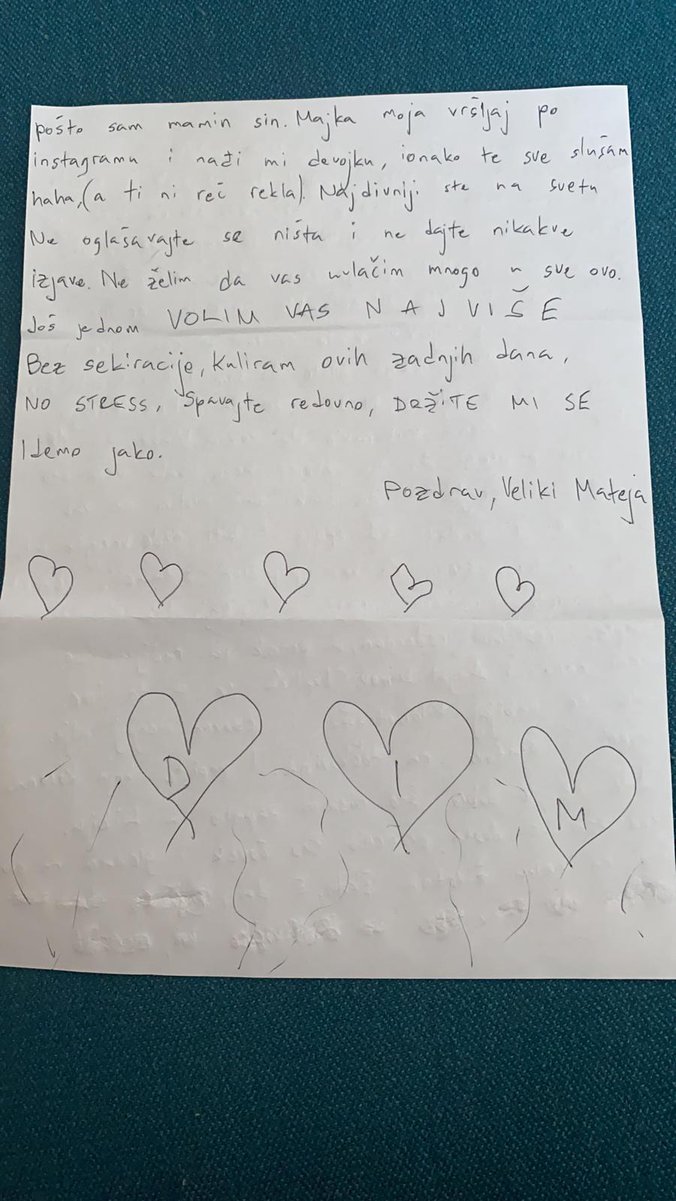 pošto sam mamin sin. Majka moja vršljaj po
instagramu i nađi mi devojku, ionako te sve slušam
haha, (a ti ni reč rekla). Najdivniji ste na svetu
Ne oglašavajte se ništa i ne dajte nikakve
izjave. Ne želim da vas uvlačim mnogo u sve ovo.
Još jednom VOLIM VAS NAJVIŠE
Bez sekiracije, Kuliram ovih zadnjih dana,
NO STRESS, Spavajte redovno, DRŽITE MI SE
Idemo jako.
Pozdrav, Veliki Mateja
D I M